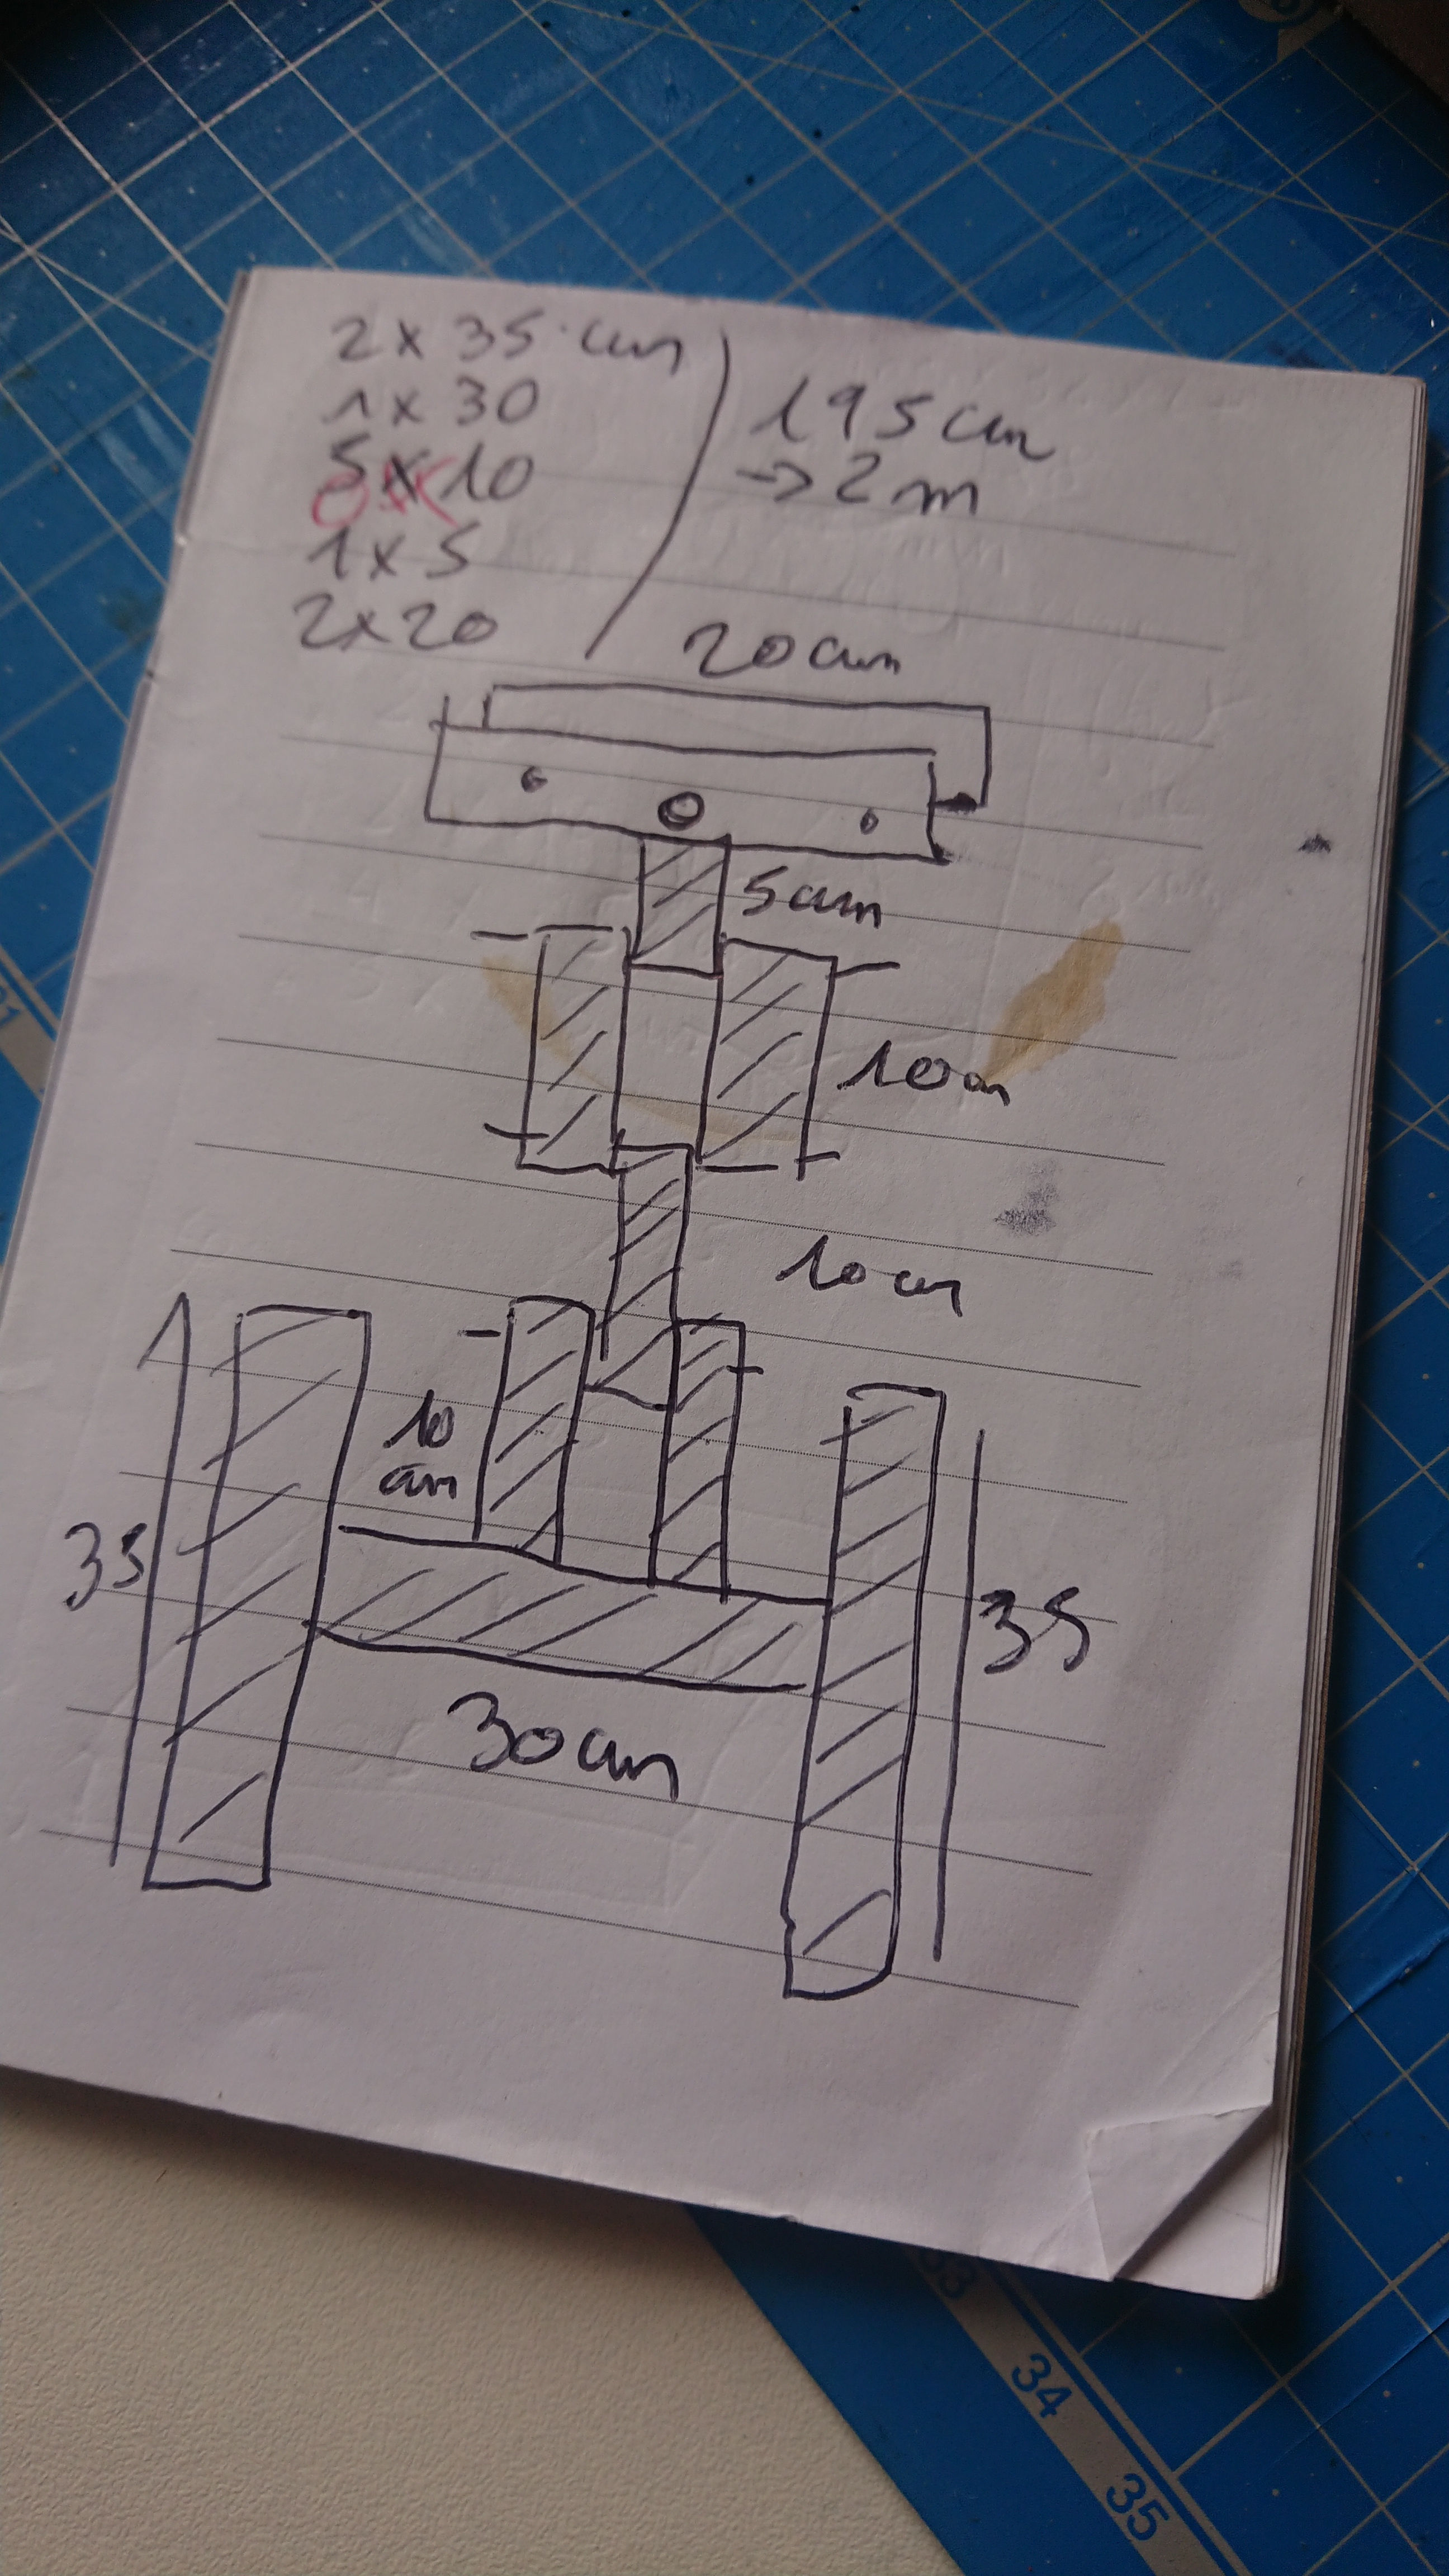 2 x 35 cm
1 x 30
5 x 10
OK
1 x 5
2 x 20
195 cm
→ 2 m
20 cm
5 cm
10 cm
10 cm
10
cm
35
35
30 cm
33
34
35